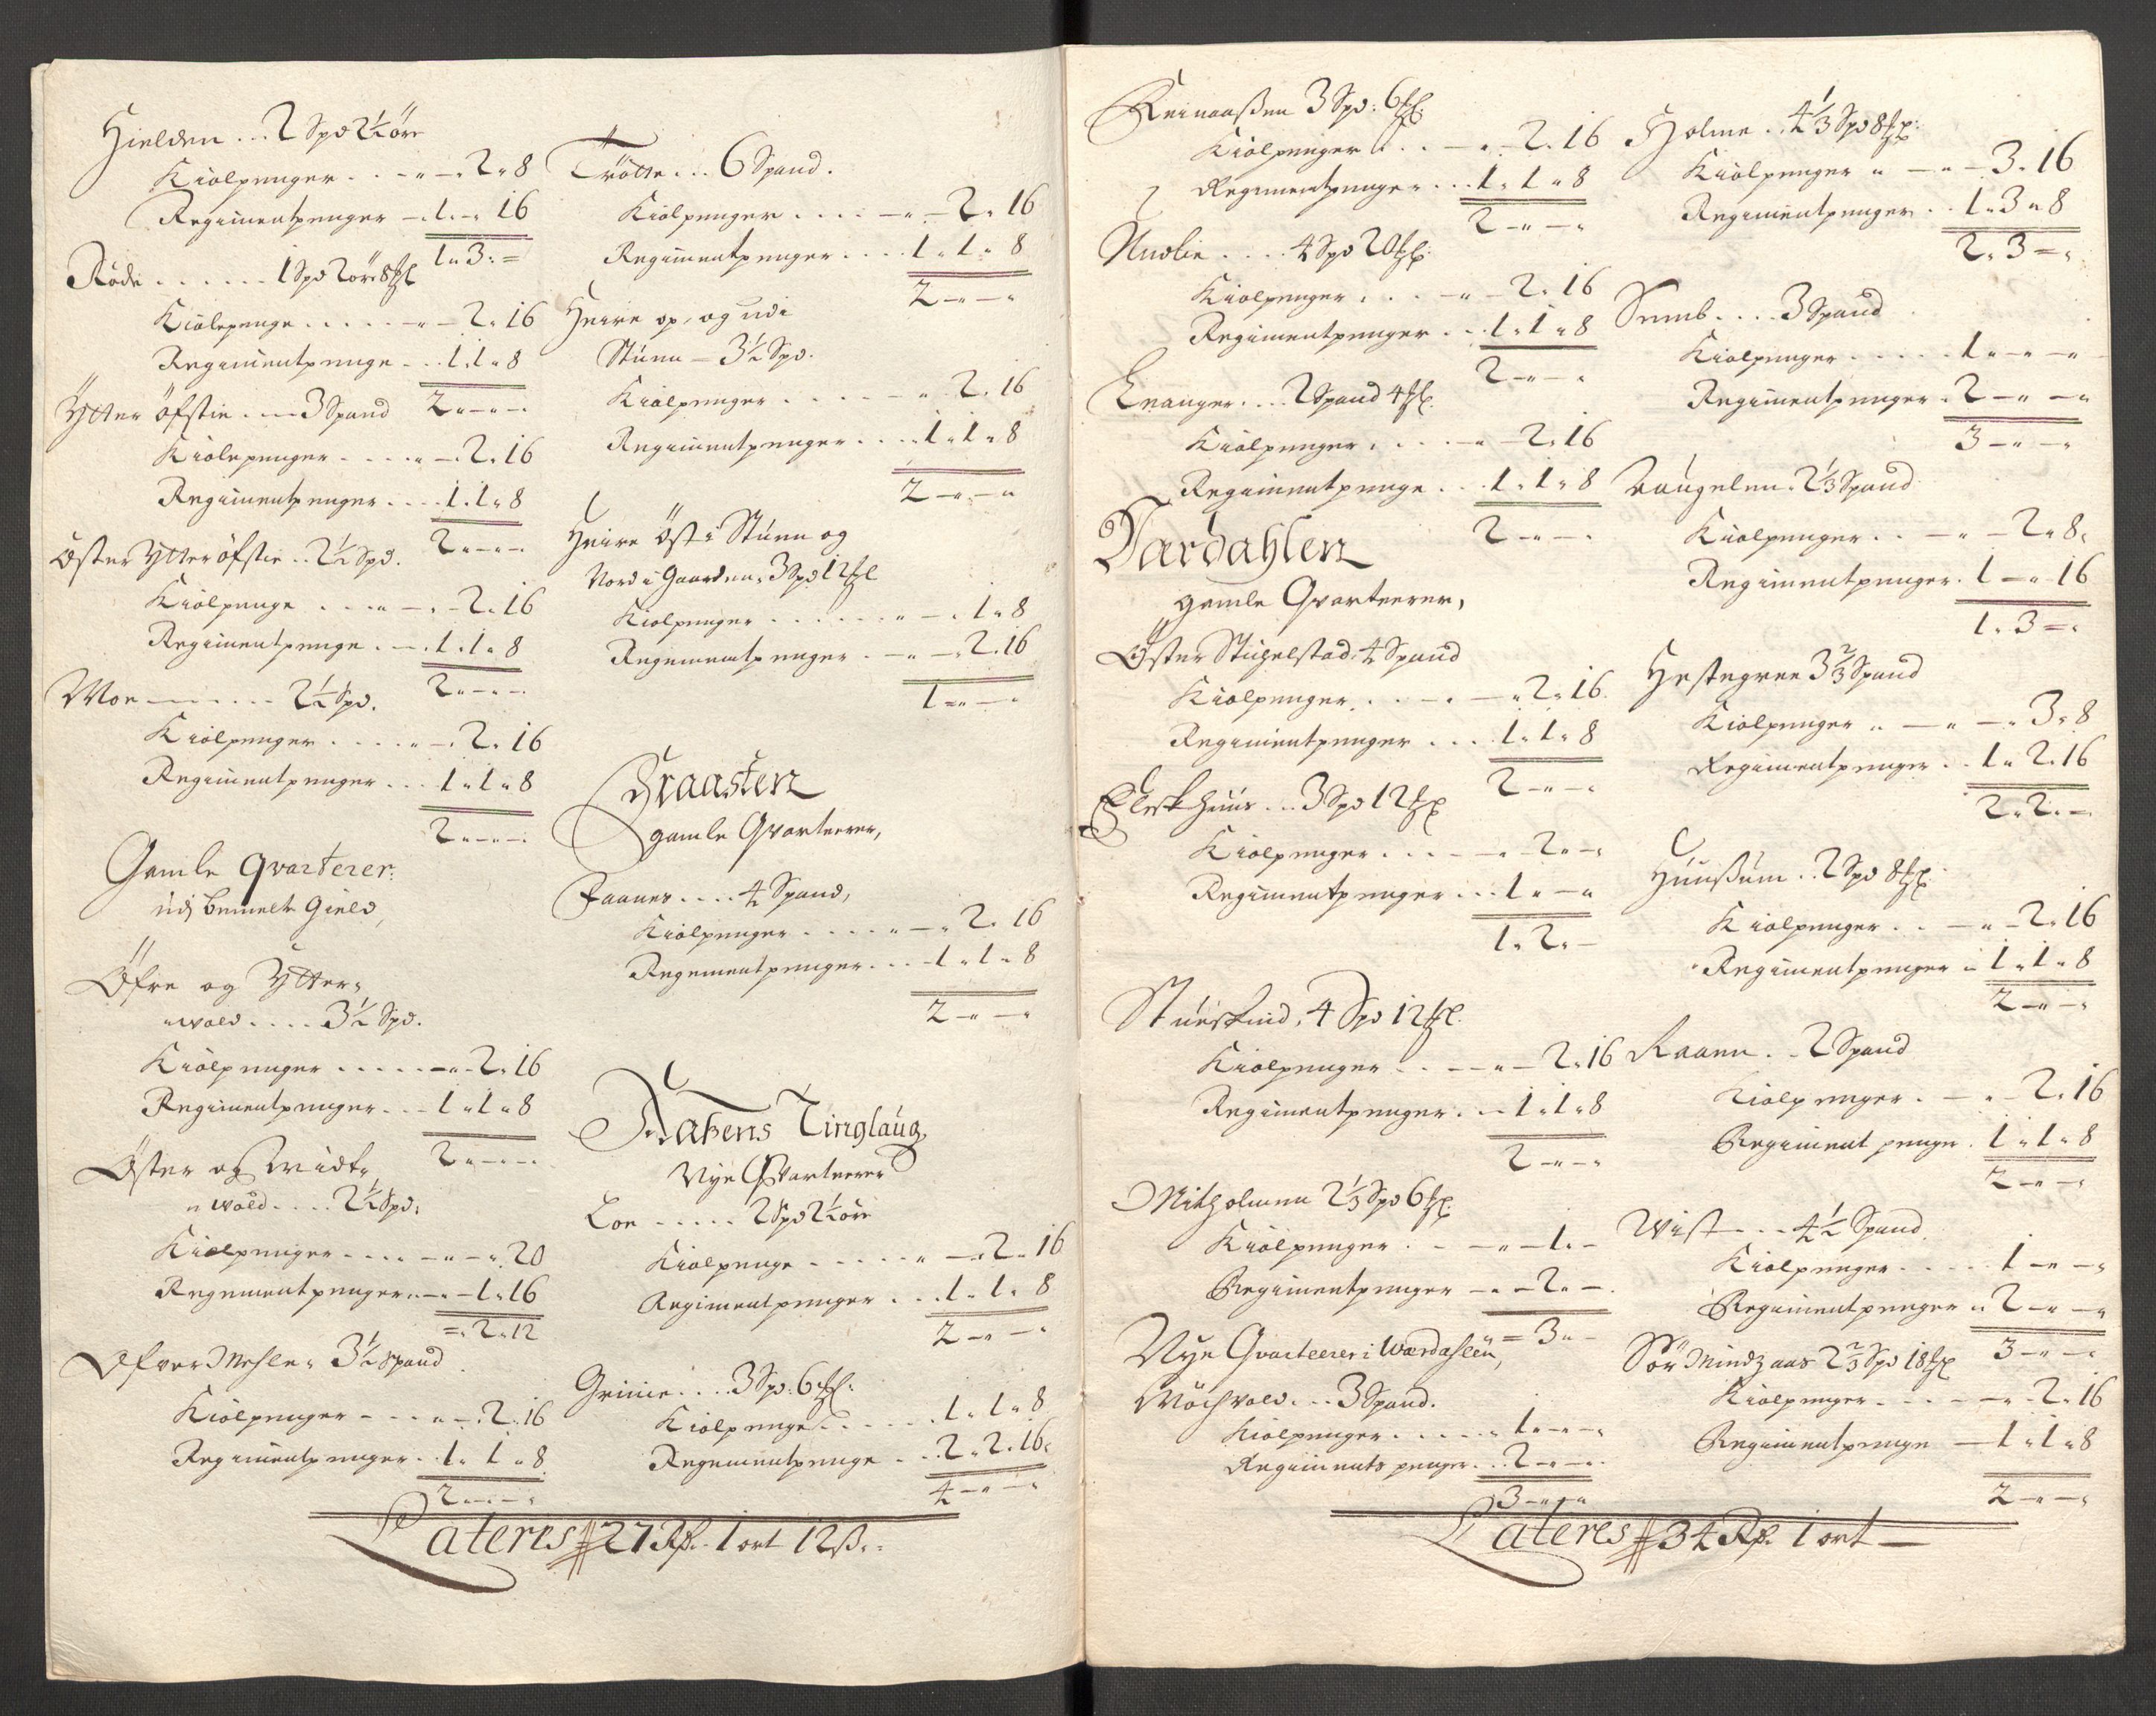 Hielden ... 2 Spd 2½ öre
Kiölpenger . . - " - . 2 " 8
Regimentpenger - . 1 . - " 16
1 " 3 : =
Röde . . . . . . 1 Spd 2 öre 8 ℔
Kiölepenge . . . . . - " - 2 " 16
Regimentpenge . . . 1 . 1 " 8
2 " - " -
Ytter öfstie . . . 3 Spand
Kiölepenger . . . . " - . 2 . 16
Regimentpenger . . . . 1 . 1 " 8
2 " - " -
Öster Ytteröfstie . . 2½ Spd.
Kiölpenge . . . " - . - 2 . 16
Regimentpenge . - . 1 . 1 " 8
2 " - " -
Moe - - - - 2½ Spd.
Kiölpenger . . . . " - . 2 . 16
Regimentpenger . . . 1 " 1 " 8
2 " - " -
Gamle Qvarterer
udj bemelte Gield,
Öfre og Ytter-
"wold . . . . 3½ Spd.
Kiölpenger . . . . . - " - 2 . 16
Regimentpenger . . . 1 " 1 " 8
2 " - " -
Öster og
" wold . . . . 2½ Spd.
Kiölpenger . . . . - " - " 20
Regementpenger . . - " - 1 " 16
= . 2 " 12
Ofver Mehle " 3½ Spand
Kiölpenger - . . " - . 2 . 16
Regimentpenger . . 1 . 1 " 8
2 " - " -
Trötte . . . 6 Spand.
Kiölpenger . . . . - " - 2 " 16
Regimentpenger . . . . 1 " 1 " 8
2 - " - "
Heire op, og udi
Stuen - 3½ Spd.
Kiölpenger . . . . - . - " 2 . 16
Regimentpenger . . . . 1 " 1 " 8
2 - " - "
Heire Öst i Stuen og
Nord i Gaarden, 3 Spd 12 ℔
Kiölpenger . . . . . . . " - . 1 " 8
Regementpenger . - " - " 2 . 16
1 - " - "
Graasten
gamle Qvarteerer,
Faanes . . . . 4 Spand,
Kiölpenger . . . . . " - " 2 . 16
Regementpenger . . . 1 " 1 " 8
2 - " - "
Nahens Tinglaug
Nye Qvarteerer
Loe . . . . . 2 Spd 2½ öre
Kiölpenge . . . . . " - . 2 " 16
Regimentpenger . . . 1 . 1 " 8
2 - " - "
Grinie . . . . 3 Spd: 6 ℔:
Kiölpenge . . . . . . 1 . 1 " 8
Regementpenge . . . 2 " 2 . 16
4 - " - "
Lateres # 27 Rd. 1 ort 12 ß . .
Reinaaßen 3 Spd: 6 ℔.
Kiölpenger . . . - " - 2 . 16
Regimentpenger . . . 1 . 1 " 8
2 - " - "
4 Spd 20 ℔:
Kiölpenger . . . - " - 2 " 16
Regimentpenger . . . 1 " 1 " 8
2 - " - "
Levanger . . . 2 Spand 4 ℔.
Kiölpenger . . . . - " - 2 " 16
Regimentpenge . . . 1 . 1 " 8
2 - " - .
Værdahlen
gamle Qvarteerer,
Öster Stichelstad, 4 Spand
Kiölpenger . . - . - " 2 " 16
Regimentpenger . . . 1 . 1 " 8
2 - " - "
3 Spd 12 ℔
Kiölpenger . . . . - " 2 " - "
Regimentpenger . . . 1 " - "
1 " 2 " -
4 Spd 12 ℔.
Kiölpenger . . - - " - 2 " 16
Regimentpenger . . - 1 " 1 " 8
2 - " - "
Mitholmen 2⅓ Spd 6 ℔.
Kiölpenger . - - " - 1 " -
Regimentpenger - " - 2 " -
= 3 " -
Nye Qvarteerer i Værdahlen,
3 Spand.
Kiölpenger . . . . . " 1 " - " - "
Regiments penger . . . 2 - " - "
3 - " - "
Holme . . 4⅓ Spd 8 ℔:
Kiölpenger " - " - 3 " 16
Regimentpenger . . 1 " 3 " 8
2 . 3 = "
Semb . . . . 3 Spand
Kiölpenger . . . . . 1 " - " - "
Regimentpenger . 2 - " - "
3 - " - "
2⅓ Spand
Kiölpenger . . - " - 2 " 8 "
Regimentpenger . 1 - " 16
1 . 3 = "
Hestegree 3⅔ Spand
Kiölpenger " - " - " 3 " 8
Regimentpenger . . 1 " 2 . 16
2 " 2 " -
2 Spd 8 ℔.
Kiölpenger . . - " - 2 . 16
Regimentpenger . . 1 " 1 " 8
2 - " - "
Raaen . . 2 Spand
Kiölpenger . - " - 2 . 16
Regiment penge . 1 " 1 " 8
2 - " - "
Wist - . . . 4½ Spand
Kiölpenger . . . . . 1 - " - "
Regimentpenger . . 2 - " - "
3 - " - "
Sör Mindzaas 2⅔ Spd 18 ℔
Kiölpenger . . . - - " - 2 . 16
Regimentpenge - 1 " 1 " 8
2 - " - "
Lateres # 34 Rd. 1 ort -